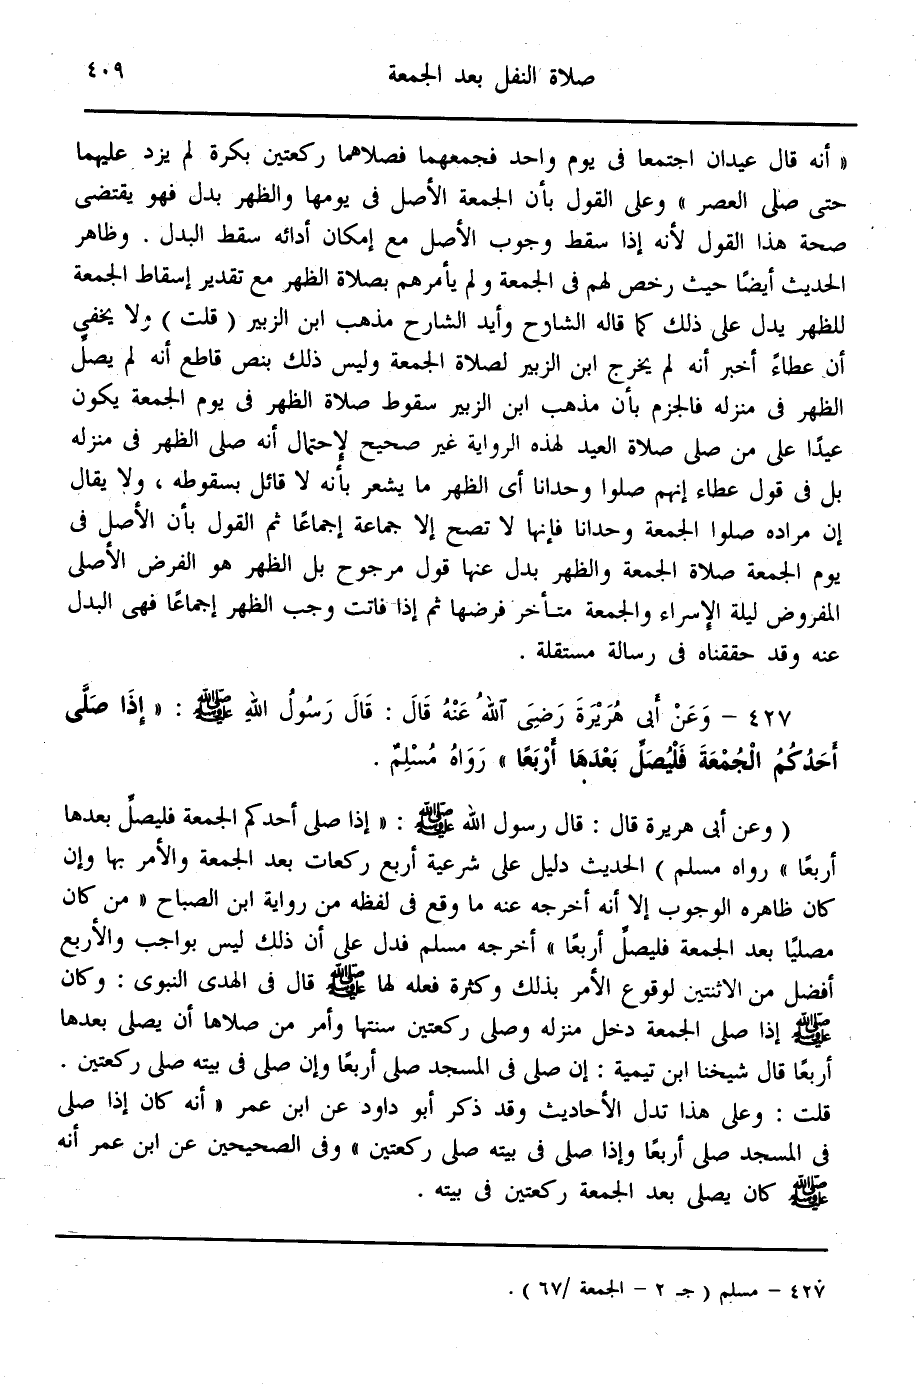 صلاة النفل بعد الجمعة ٤٠٩
« أنه قال عيدان اجتمعا فى يوم واحد فجمعهما فصلاهما ركعتين بكرة لم يزد عليهما
حتى صلى العصر » وعلى القول بأن الجمعة الأصل فى يومها والظهر بدل فهو يقتضى
صحة هذا القول لأنه إذا سقط وجوب الأصل مع إمكان أدائه سقط البدل . وظاهر
الحديث أيضًا حيث رخص لهم فى الجمعة ولم يأمرهم بصلاة الظهر مع تقدير إسقاط الجمعة
للظهر يدل على ذلك كما قاله الشارح وأيد الشارح مذهب ابن الزبير ( قلت ) ولا يخفى
أن عطاءً أخبر أنه لم يخرج ابن الزبير لصلاة الجمعة وليس ذلك بنص قاطع أنه لم يصلِّ
الظهر فى منزله فالجزم بأن مذهب ابن الزبير سقوط صلاة الظهر فى يوم الجمعة يكون
عيدًا على من صلى صلاة العيد لهذه الرواية غير صحيح لإحتمال أنه صلى الظهر فى منزله
بل فى قول عطاء إنهم صلوا وحدانا أى الظهر ما يشعر بأنه لا قائل بسقوطه ، ولا يقال
إن مراده صلوا الجمعة وحدانا فإنها لا تصح إلا جماعة إجماعًا ثم القول بأن الأصل فى
يوم الجمعة صلاة الجمعة والظهر بدل عنها قول مرجوح بل الظهر هو الفرض الأصلى
المفروض ليلة الإسراء والجمعة متأخر فرضها ثم إذا فاتت وجب الظهر إجماعًا فهى البدل
عنه وقد حققناه فى رسالة مستقلة .
٤٢٧ – وَعَنْ أَبِى هُرَيْرَةَ رَضِىَ ٱللهُ عَنْهُ قَالَ : قَالَ رَسُولُ اللهِ ﷺ : « إِذَا صَلَّى
أَحَدُكُمُ الْجُمْعَةَ فَلْيُصَلِّ بَعْدَهَا أَرْبَعًا » رَوَاهُ مُسْلِمٌ .
( وعن أبى هريرة قال : قال رسول الله ﷺ : « إذا صلى أحدكم الجمعة فليصلِّ بعدها
أربعًا » رواه مسلم ) الحديث دليل على شرعية أربع ركعات بعد الجمعة والأمر بها وإن
كان ظاهره الوجوب إلا أنه أخرجه عنه ما وقع فى لفظه من رواية ابن الصباح « من كان
مصليًا بعد الجمعة فليصلِّ أربعًا » أخرجه مسلم فدل على أن ذلك ليس بواجب والأربع
أفضل من الاثنتين لوقوع الأمر بذلك وكثرة فعله لها ﷺ قال فى الهدى النبوى : وكان
ﷺ إذا صلى الجمعة دخل منزله وصلى ركعتين سنتها وأمر من صلاها أن يصلى بعدها
أربعًا قال شيخنا ابن تيمية : إن صلى فى المسجد صلى أربعًا وإن صلى فى بيته صلى ركعتين .
قلت : وعلى هذا تدل الأحاديث وقد ذكر أبو داود عن ابن عمر « أنه كان إذا صلى
فى المسجد صلى أربعًا وإذا صلى فى بيته صلى ركعتين » وفى الصحيحين عن ابن عمر أنه
ﷺ كان يصلى بعد الجمعة ركعتين فى بيته .
٤٢٧ – مسلم ( جـ ٢ – الجمعة /٦٧ ) .